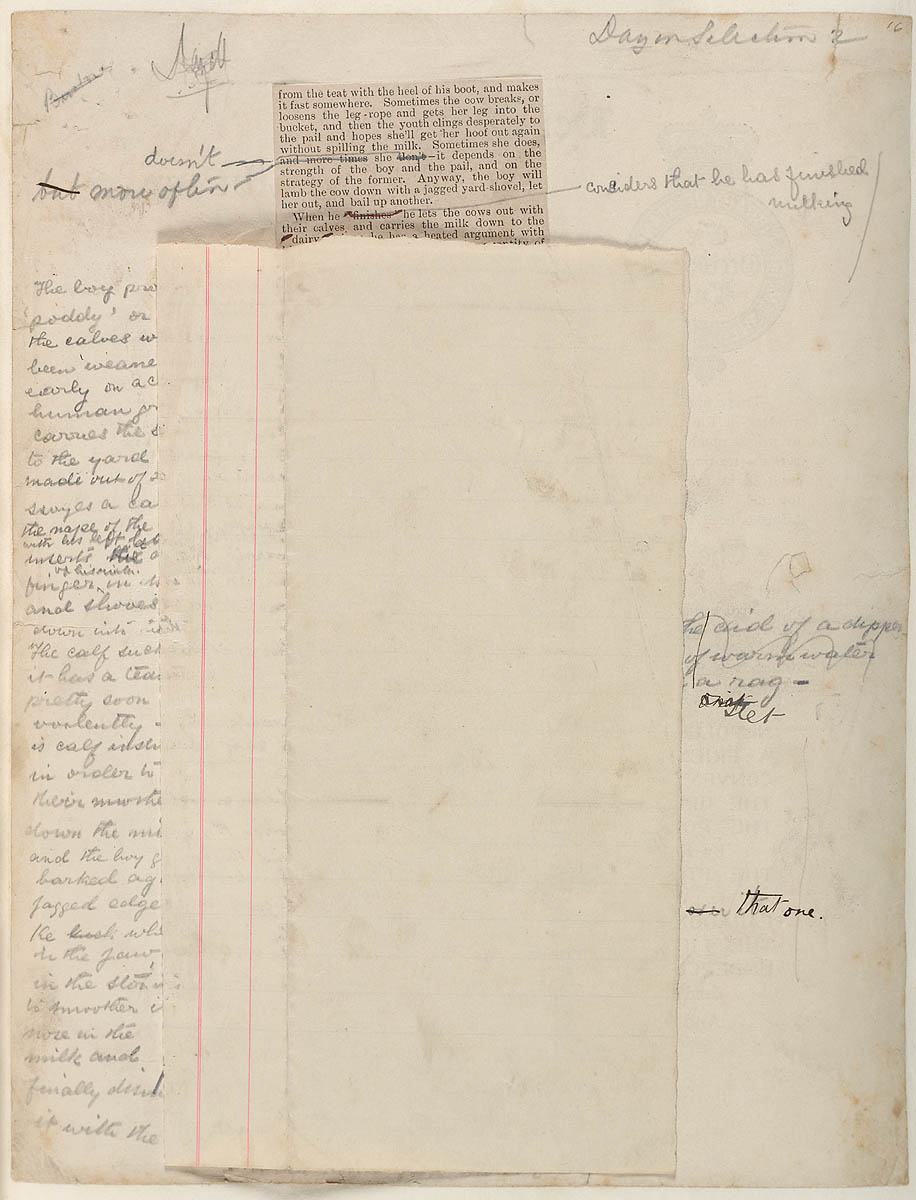 Day on Selection 2
16
from the teat with the heel of his boot, and makes
it fast somewhere. Sometimes the cow breaks, or
loosens the leg-rope and gets her leg into the
bucket, and then the youth clings desperately to
the pail and hopes she'll get her hoof out again
without spilling the milk. Sometimes she does,
and more times she don't—it depends on the
strength of the boy and the pail, and on the
strategy of the former. Anyway, the boy will
lamb the cow down with a jagged yard-shovel, let
her out, and bail up another.
When he "finishes" he lets the cows out with
their calves and carries the milk down to the
dairy he has a heated argument with
of
doesn't
but more often
considers that he has finished
milking
The boy
'poddy' or
the calves
been weane
early on ac
human
carries the
to the yard
made out of
a ca
the nape of the
with his left
inserts the
finger in
and shoves
down into
The calf suck
it has a tea
pretty soon
violently
is calf
in order to
their mothe
down the mi
and the boy g
barked ag
jagged edge
He
in the jaw,
in the stom
to smother i
nose in the
milk and
finally
it with the
he aid of a dipper
of warm water
a rag —
Stet
that one.